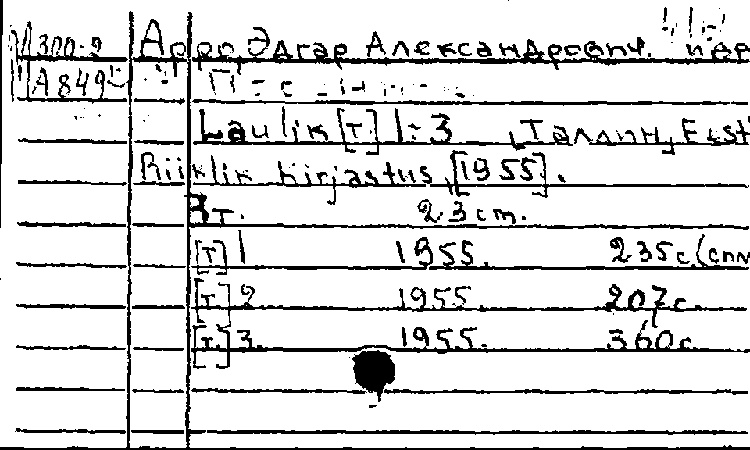 М300-2 Арро, Эдгар Александрович.
А849
Laulik [т] 1-3 [Таллин, Eesti
Riiklik Kirjastus, [1955].
3т. 23 cm.
[т] 1 1955. 235 с.
[т] 2 1955. 207 с.
[т.] 3. 1955. 360 с.